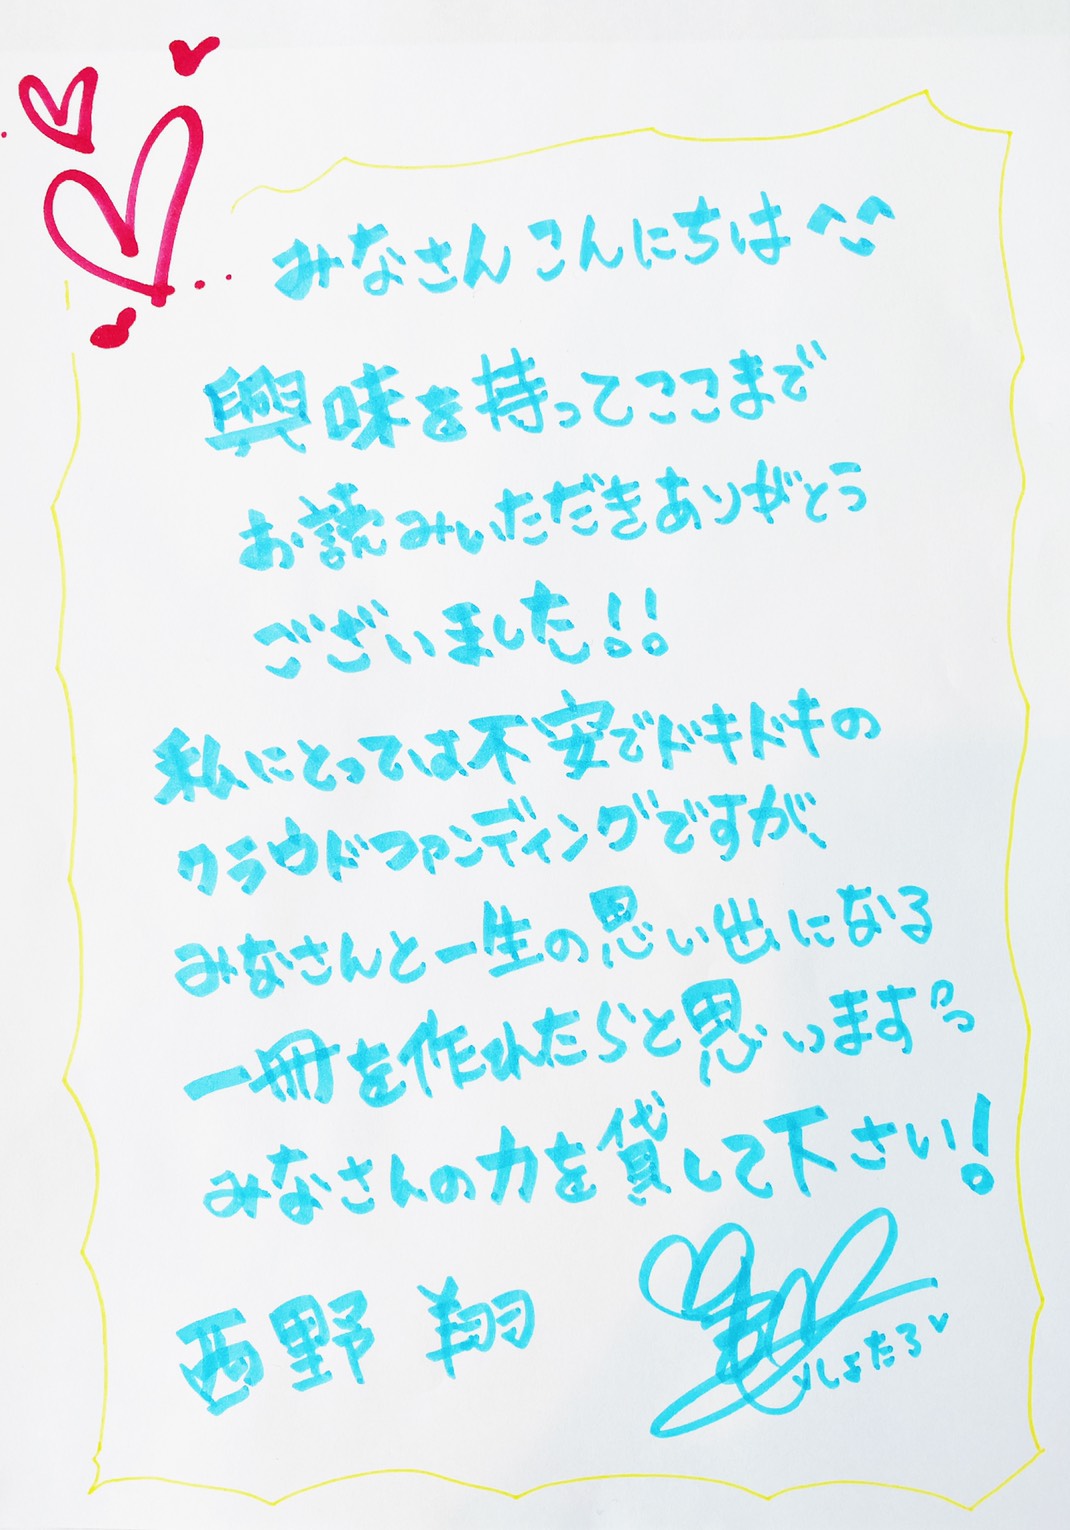 みなさんこんにちは^^
興味を持ってここまで
お読みいただきありがとう
ございました!!
私にとっては不安でドキドキの
クラウドファンディングですが、
みなさんと一生の思い出になる
一冊を作れたらと思います。
みなさんの力を貸して下さい!
西野 翔
しょたろ